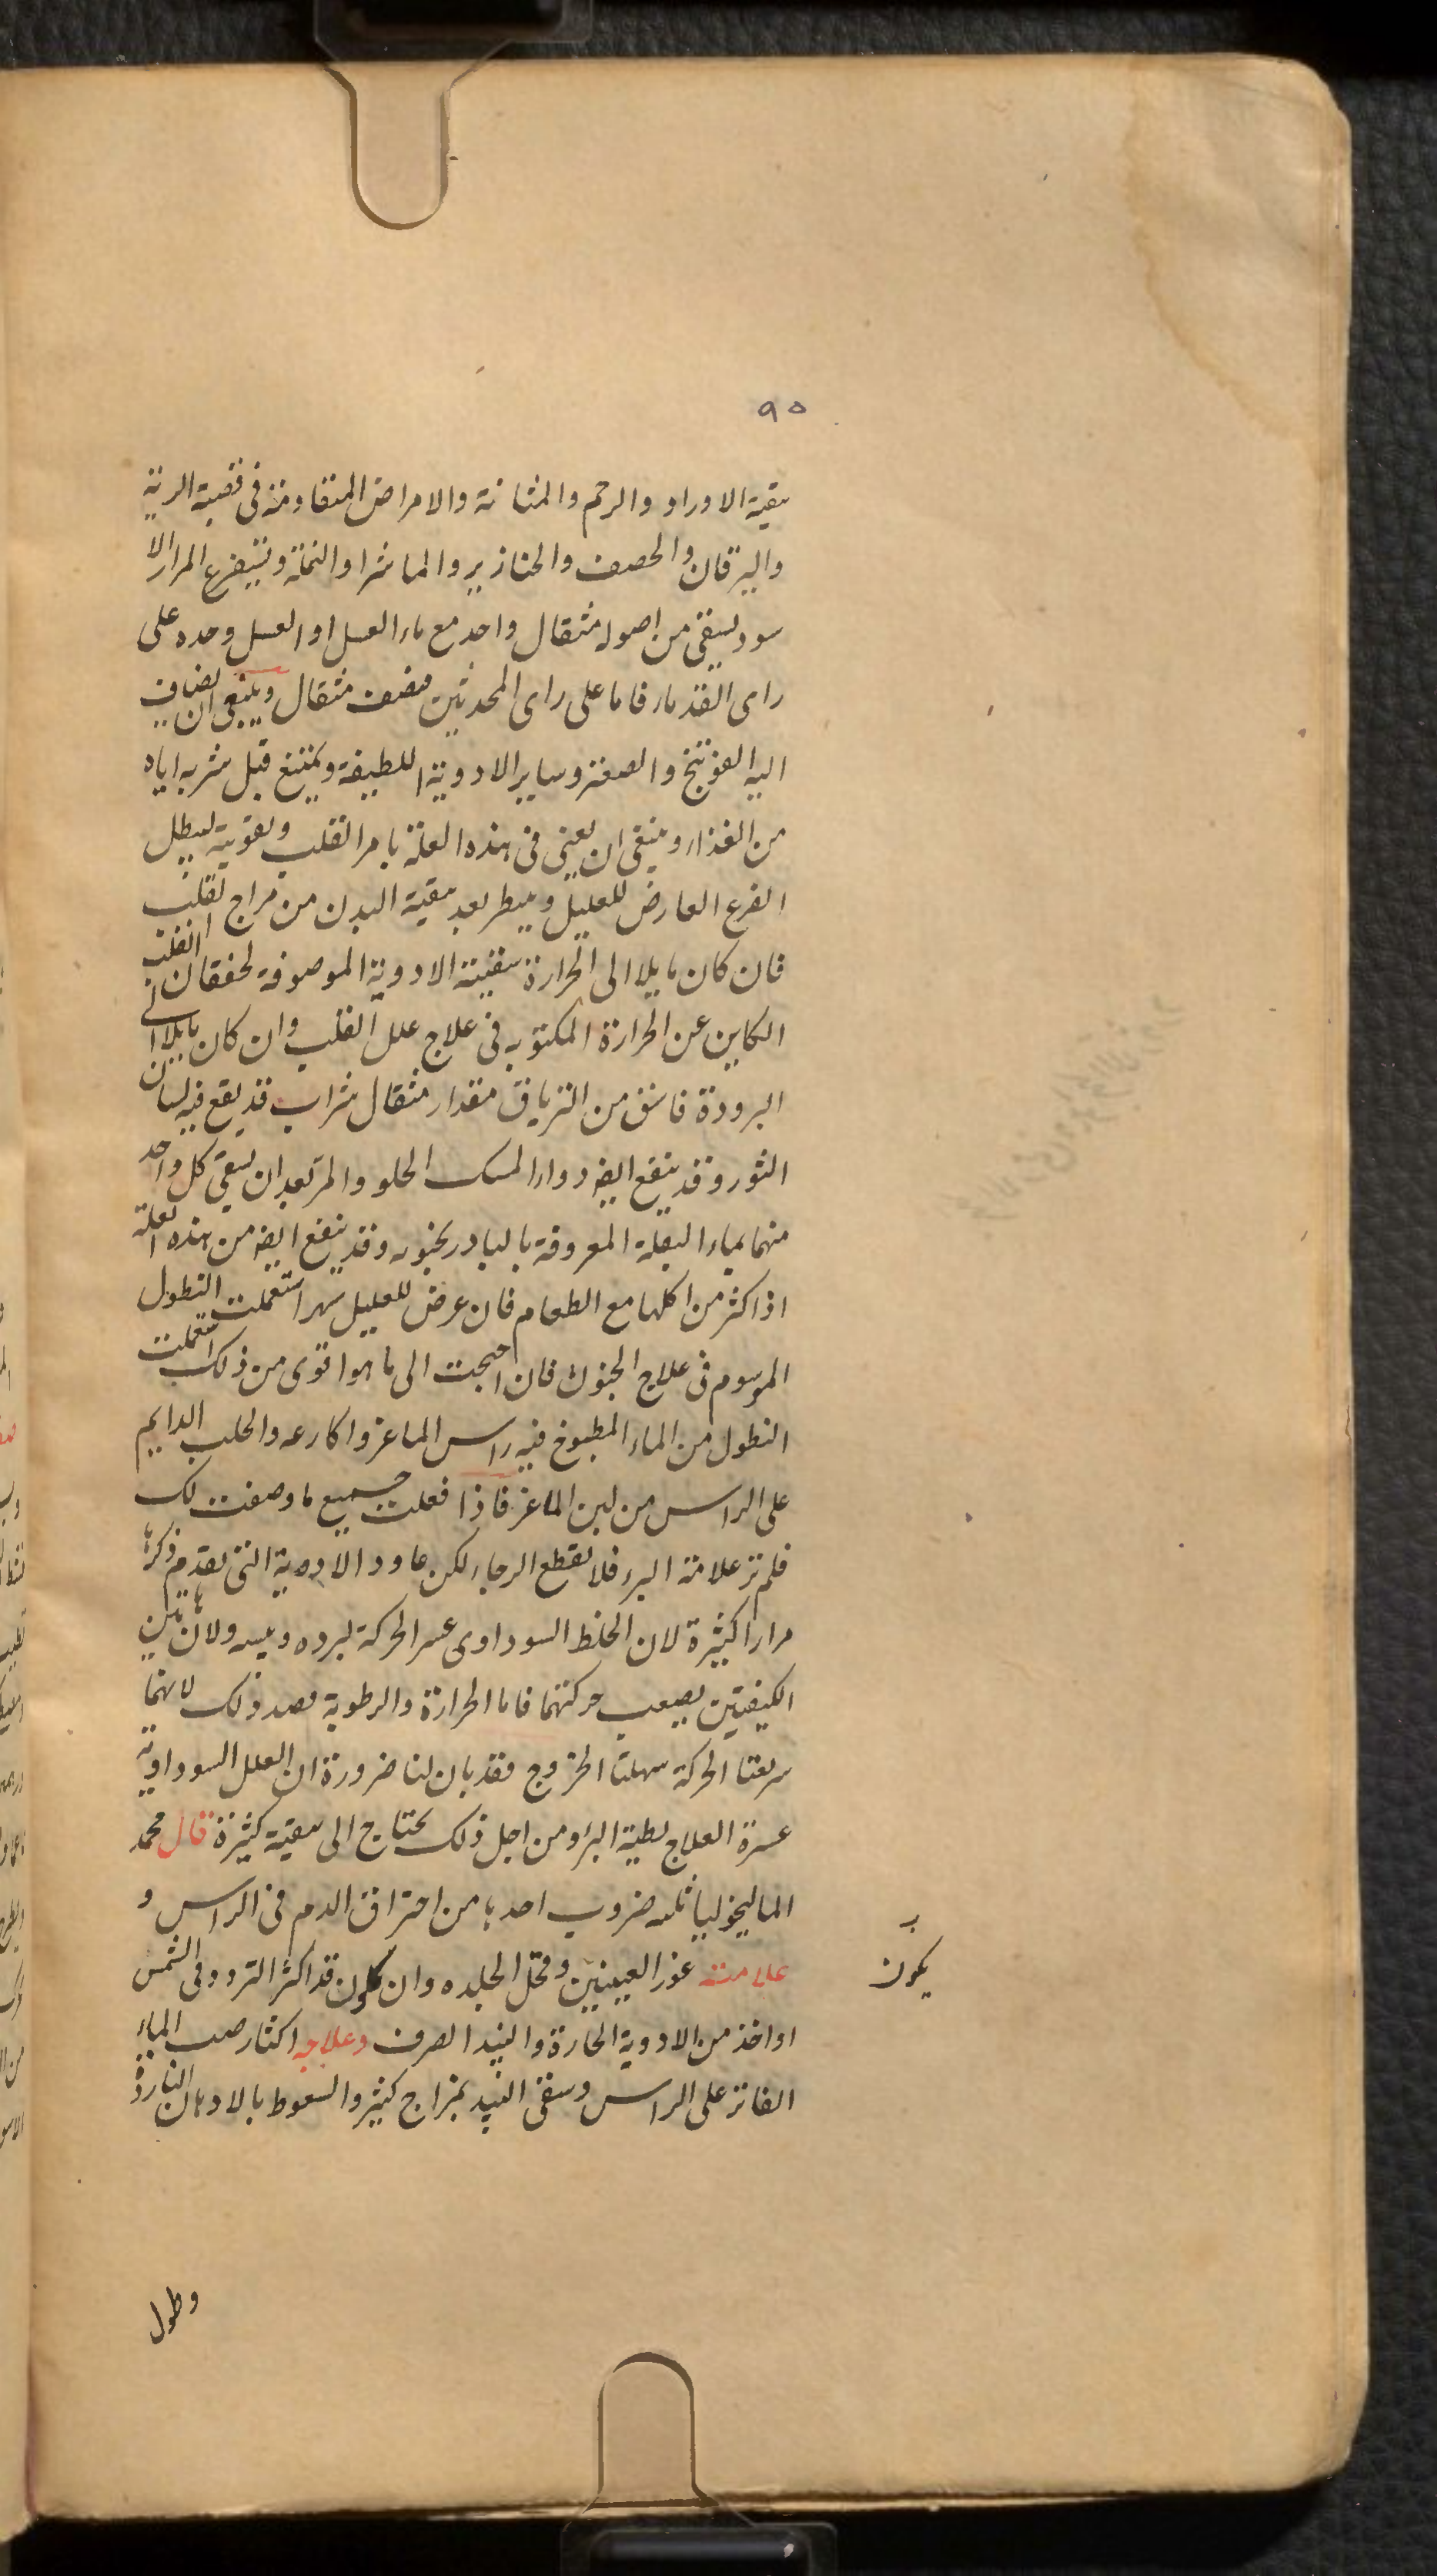 ٩٥
بقية الاوراد والرحم والمثانة والامراض المتقادمة فى قصبة الرية
واليرقان والحصف والخنازير والماشرا والنملة ويستفرغ المرار الا
سود يسقى من اصوله مثقال واحد مع ماء العسل او العسل وحده على
راى القدماء فاما على راى المحدثين فنصف مثقال وينبغى ان يضاف
اليه الفوتنج والصعتر وساير الادوية اللطيفة ويمتنع قبل شربه اياه
من الغذاء وينبغى ان يعنى فى هذه العلة بامر القلب وتقويته ليبطل
الفزع العارض للعليل وينظر بعد تنقية البدن من مزاج القلب
فان كان مايلا الى الحرارة سقيته الادوية الموصوفة لخفقان القلب
الكاين عن الحرارة المكتوبه فى علاج علل القلب وان كان مايلا الى
البرودة فاسق من الترياق مقدار مثقال شراب قد يقع فيه لسان
الثور وقد ينفع ايضا دواء المسك الحلو والمر بعد ان يسقى كل واحد
منهما بماء البقلة المعروفة بالبادرنجبويه وقد ينفع ايضا من هذه العلة
اذا كثر من اكلها مع الطعام فان عرض للعليل سهر استعملت النطول
الموسوم فى علاج الجنون فان احتجت الى ما هو اقوى من ذلك استعملت
النطول من الماء المطبوخ فيه راس الماعز واكارعه والحلب الدايم
على الراس من لبن الماعز فاذا فعلت جميع ما وصفت لك
فلم تر علامة البرء فلا تقطع الرجاء لكن عاود الادوية التى تقدم ذكرها
مرارا كثيرة لان الخلط السوداوى عسر الحركة لبرده ويبسه ولان هاتين
الكيفيتين يصعب حركتهما فاما الحرارة والرطوبة فضد ذلك لانهما
سريعتا الحركة سهلتا الخروج فقد بان لنا ضرورة ان العلل السوداوية
عسرة العلاج بطية البرؤ ومن اجل ذلك يحتاج الى تنقية كثيرة قال محمد
الماليخوليا ثلثه ضروب احدها من احتراق الدم فى الراس و
علامته غور العينين وقحل الجلده وان يكون قد اكثر التردد فى الشمس
او اخذ من الادوية الحارة والنبيذ الصرف وعلاجه اكثار صب الماء
الفاتر على الراس وسقى النبيذ بمزاج كثير والسعوط بالادهان الباردة
يكون
وطول